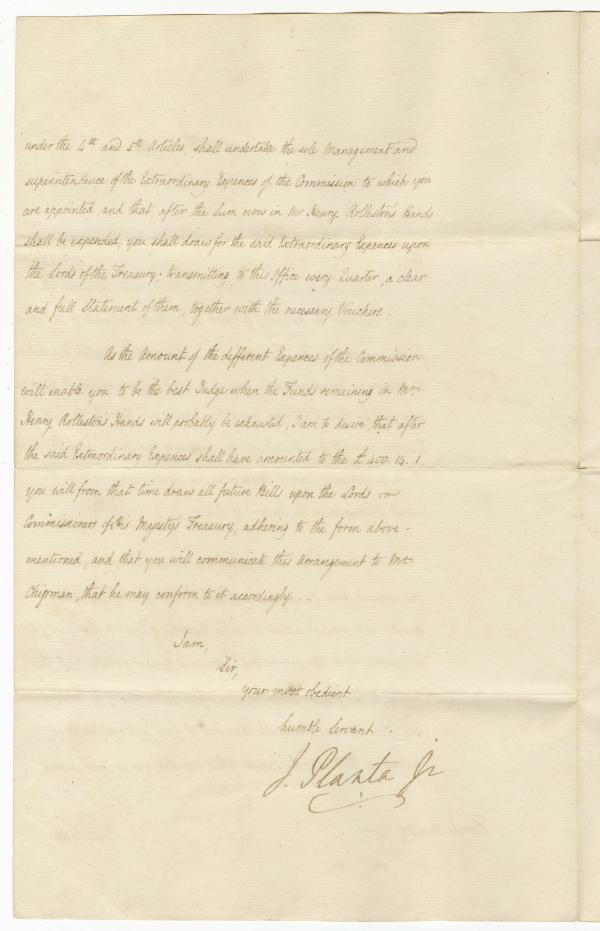 under the 4th and 5th Articles, shall undertake the sole Management and
superintendence of the Extraordinary Expences of the Commission to which you
are appointed, and that, after the Sum now in Mr Henry Rolleston's Hands
shall be expended, you shall draw for the said Extraordinary Expences upon
the Lords of the Treasury; transmitting to this Office every Quarter, a clear
and full Statement of them, together with the necessary Vouchers.
As the Amount of the different Expences of the Commission
will enable you to be the best Judge when the Funds remaining in Mr
Henry Rolleston's Hands will probably be exhausted, I am to desire that after
the said Extraordinary Expences shall have amounted to the £400. 14. 1,
you will from that time draw all future Bills upon the Lords
Commissioners of His Majesty's Treasury, adhering to the form above-
mentioned, and that you will communicate this Arrangement to Mr
Chipman, that he may conform to it accordingly.
I am,
Sir,
your most obedient
humble Servant
J. Planta Jr